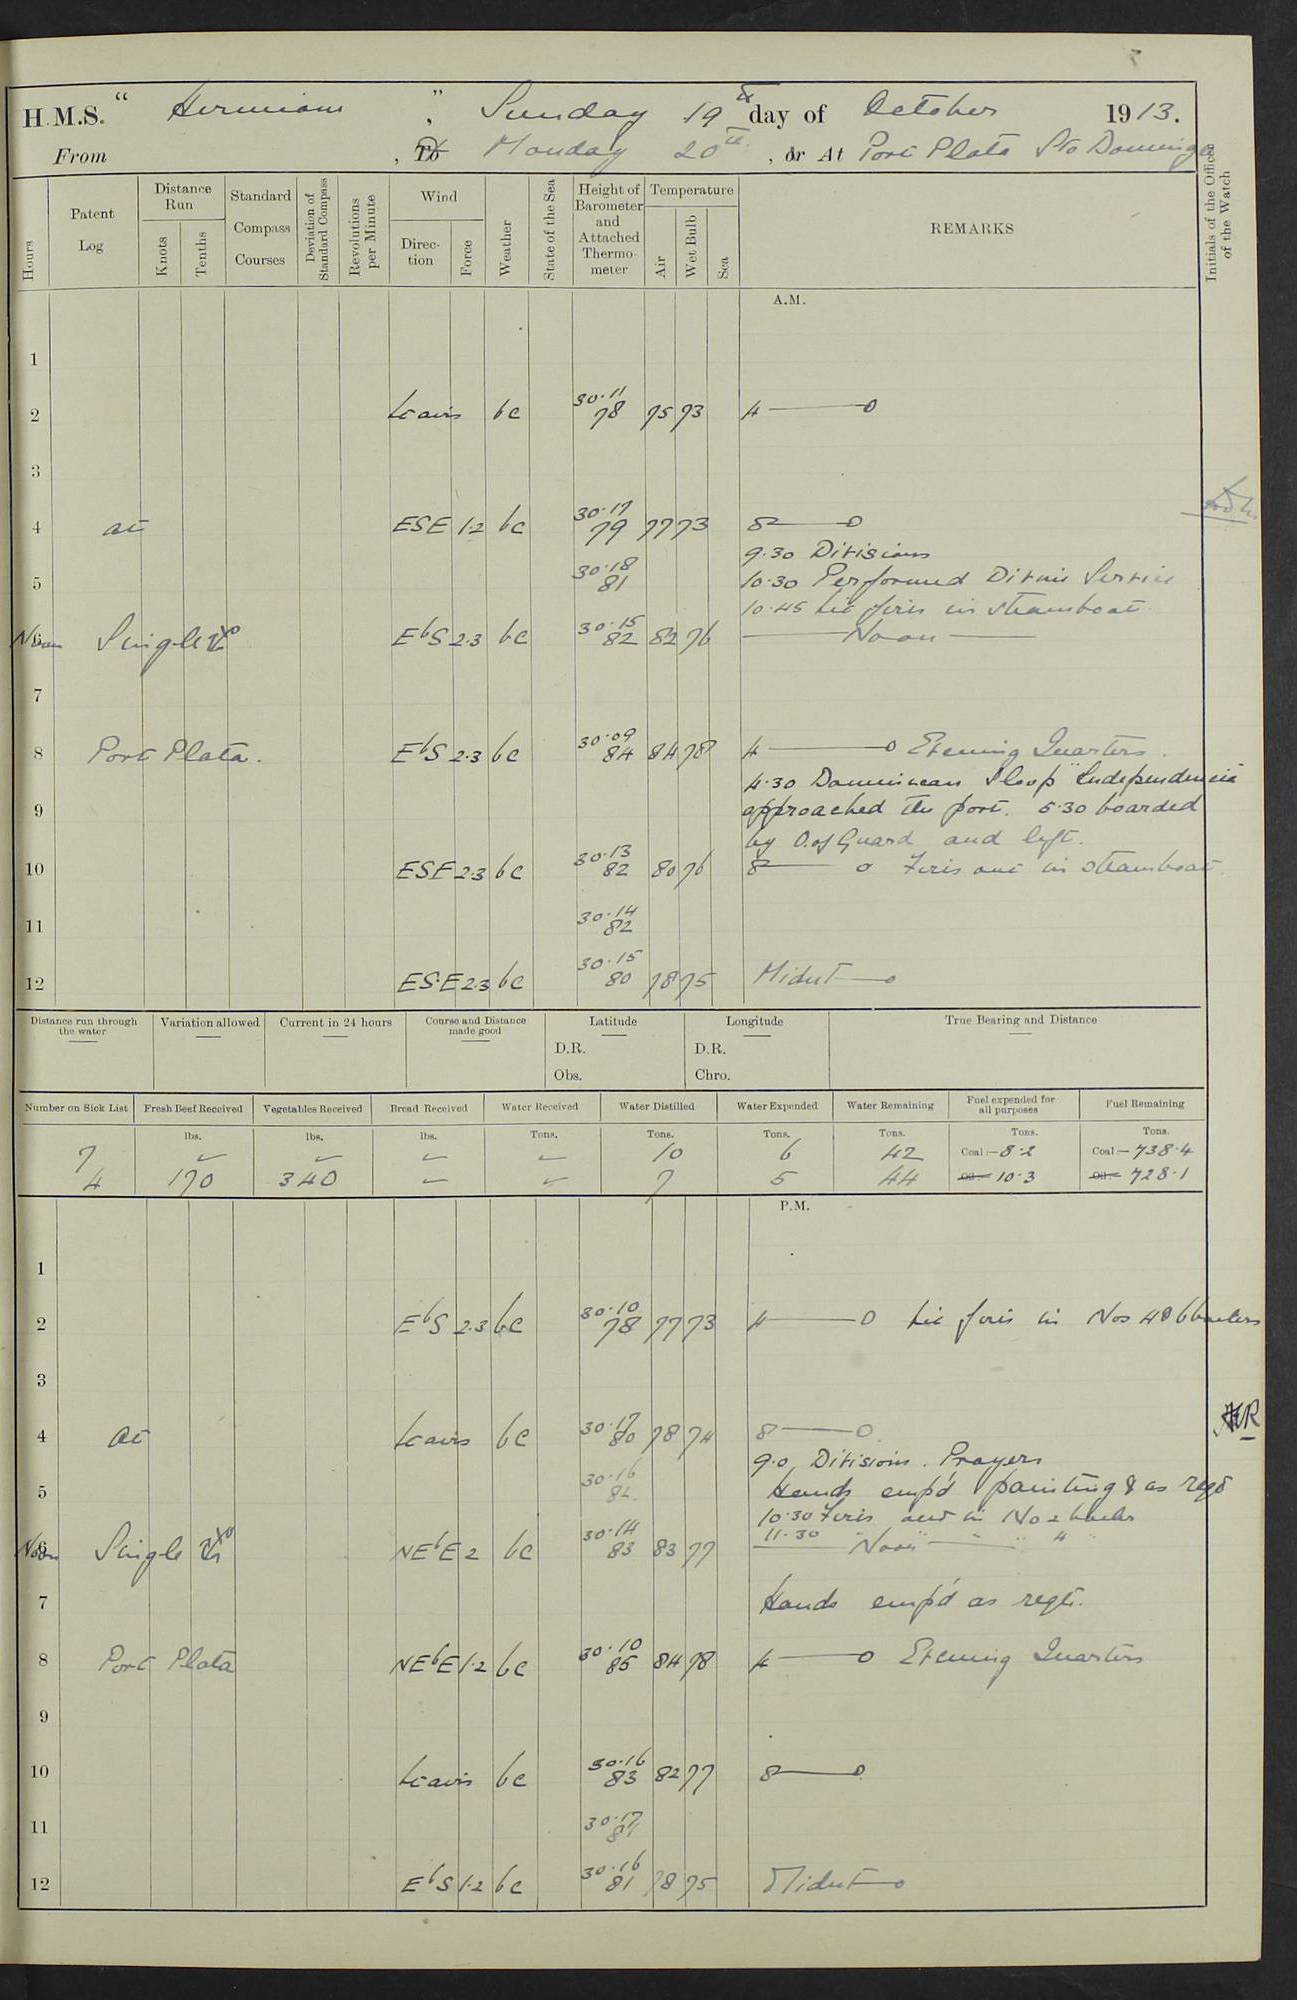 H.M.S. “ Hermione ” , Sunday 19th day of October 1913.
From , To Monday 20th , or At Port Plata Sto Domingo
Hours
Patent Log
Distance Run
Knots
Tenths
Standard Compass Courses
Deviation of Standard Compass
Revolutions per Minute
Wind
Direction
Force
Weather
State of the Sea
Height of Barometer and Attached Thermometer
Temperature
Air
Wet Bulb
Sea
REMARKS
Initials of the Officer of the Watch
A.M.
1
2 Lt airs bc 30.11 78 75 73 4 —— 0
3
4 at ESE 1.2 bc 30.17 79 77 73 8 —— 0
9.30 Divisions
5 30.18 81 10.30 Performed Divine Service
10.45 Lit fires in steamboat.
6 Noon Single Ebs 2.3 bc 30.15 82 82 76 —— Noon ——
7
8 Port Plata. EbS 2.3 bc 30.09 84 84 78 4 —— 0 Evening Quarters.
4.30 Dominican Sloop "Independencia
9 approached the port. 5.30 boarded
by O. of Guard and left.
10 ESE 2.3 bc 30.13 82 80 76 8 —— 0 Fires out in steamboat.
11 30.14 82
12 ESE 2.3 bc 30.15 80 78 75 Midnt —— 0
Distance run through the water
Variation allowed
Current in 24 hours
Course and Distance made good
Latitude
D.R.
Obs.
Longitude
D.R.
Chro.
True Bearing and Distance
Number on Sick List
Fresh Beef Received
Vegetables Received
Bread Received
Water Received
Water Distilled
Water Expended
Water Remaining
Fuel expended for all purposes
Fuel Remaining
lbs. lbs. lbs. Tons. Tons. Tons. Tons. Tons. Tons.
7 ✓ ✓ ✓ ✓ 10 6 42 Coal:— 8.2 Coal:— 738.4
4 170 340 ✓ ✓ 7 5 44 Oil:— 10.3 Oil:— 728.1
P.M.
1
2 EbS 2.3 bc 30.10 78 77 73 4 —— 0 Lit fires in Nos 4 & 6 boilers
3
4 At Lt airs bc 30.17 80 78 74 8 —— 0 HR
9.0 Divisions. Prayers
5 30.16 82 Hands emp'd painting & as reqd
10.30 Fires out in No 2 boiler
11.30 " " " 4 "
6 Noon Single NEbE 2 bc 30.14 83 83 77 —— Noon ——
7 Hands emp'd as reqd.
8 Port Plata NEbE 1.2 bc 30.10 85 84 78 4 —— 0 Evening Quarters
9
10 Lt airs bc 30.16 83 82 77 8 —— 0
11 30.17 81
12 EbS 1.2 bc 30.16 81 78 75 Midnt —— 0